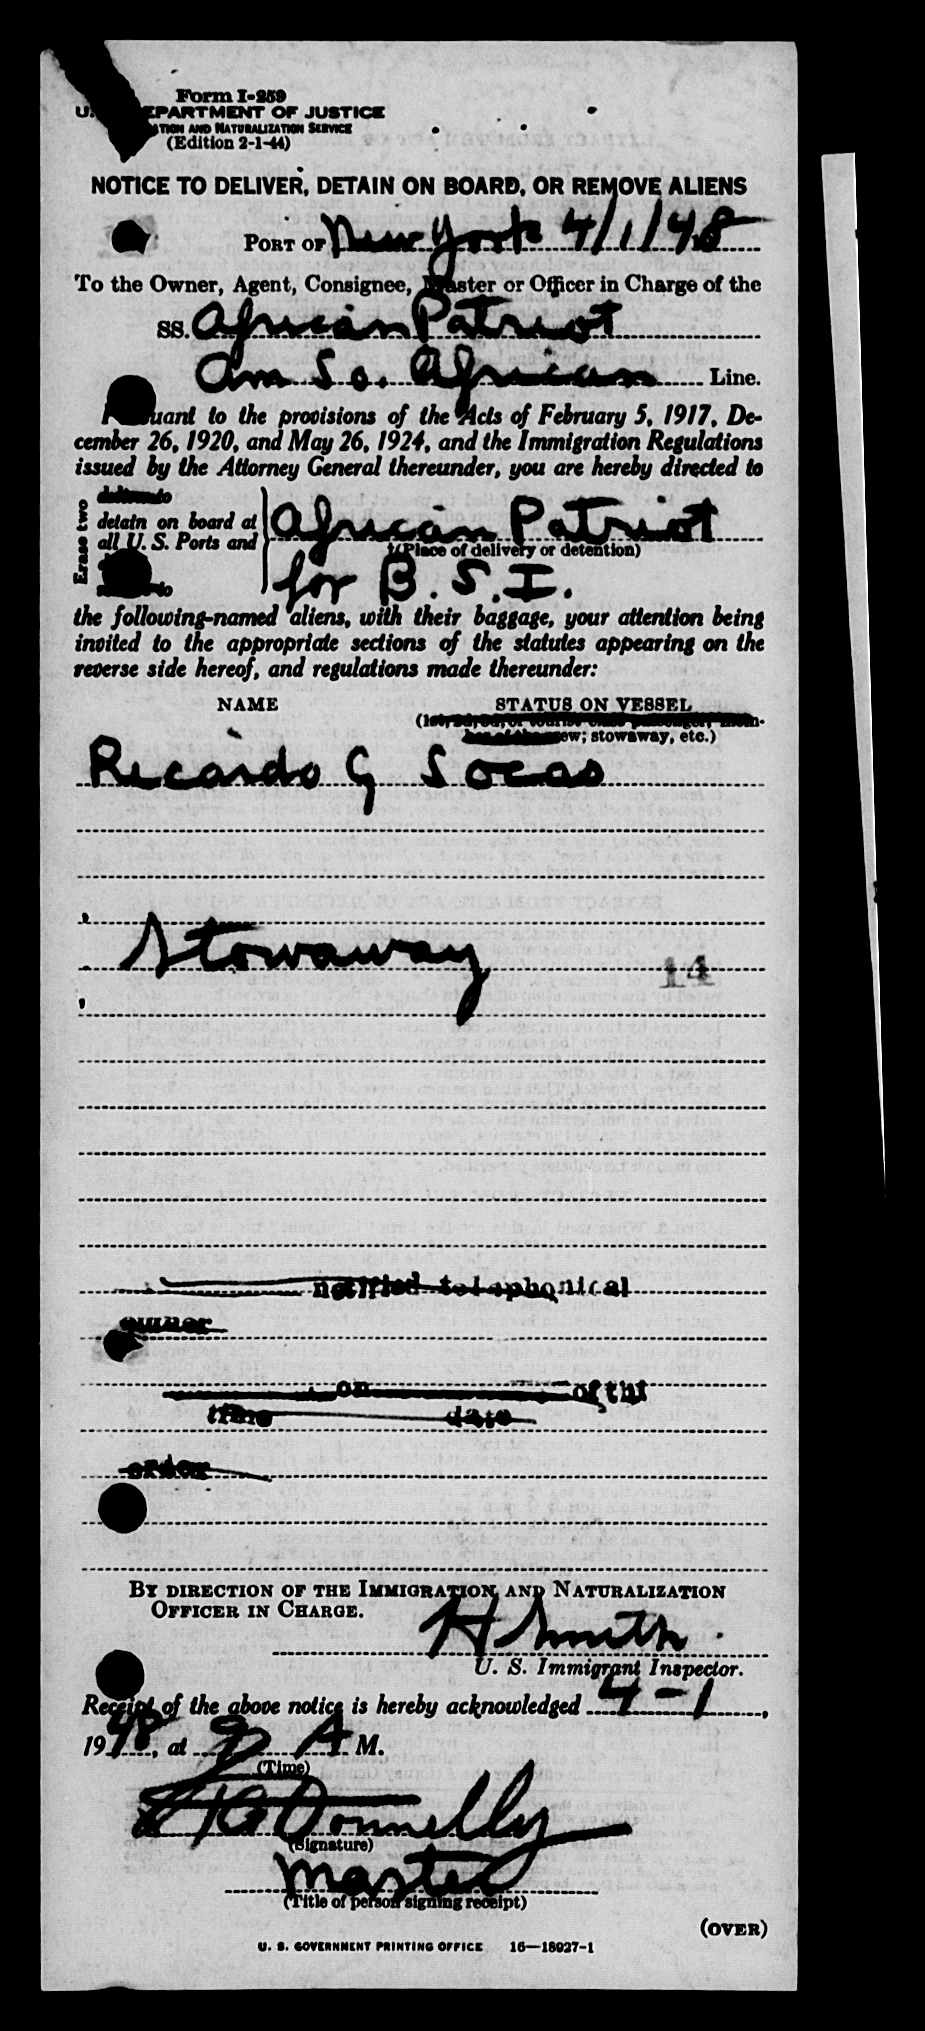 Form I-259
U. EPARTMENT OF JUSTICE
ATION AND NATURALIZATION SERVICE
(Edition 2-1-44)
NOTICE TO DELIVER, DETAIN ON BOARD, OR REMOVE ALIENS
PORT OF New York 4/1/48
To the Owner, Agent, Consignee, Master or Officer in Charge of the
SS. African Patriot
Am So. African Line.
Pursuant to the provisions of the Acts of February 5, 1917, De-
cember 26, 1920, and May 26, 1924, and the Immigration Regulations
issued by the Attorney General thereunder, you are hereby directed to
Erase two
deliver to
detain on board at
all U. S. Ports and
African Patriot
(Place of delivery or detention)
for B.S.I.
the following-named aliens, with their baggage, your attention being
invited to the appropriate sections of the statutes appearing on the
reverse side hereof, and regulations made thereunder:
NAME STATUS ON VESSEL
(1st, 2d, 3d, or tourist class passenger; mem-
ber of the crew; stowaway, etc.)
Ricardo G Socas
Stowaway
14
notified telephonical
owner
on of thi
time date
order
BY DIRECTION OF THE IMMIGRATION AND NATURALIZATION
OFFICER IN CHARGE.
H Smith
U. S. Immigrant Inspector.
Receipt of the above notice is hereby acknowledged 4-1,
1948, at 9 A M.
(Time)
Donnelly
(Signature)
Master
(Title of person signing receipt)
(OVER)
U. S. GOVERNMENT PRINTING OFFICE 16—18027-1